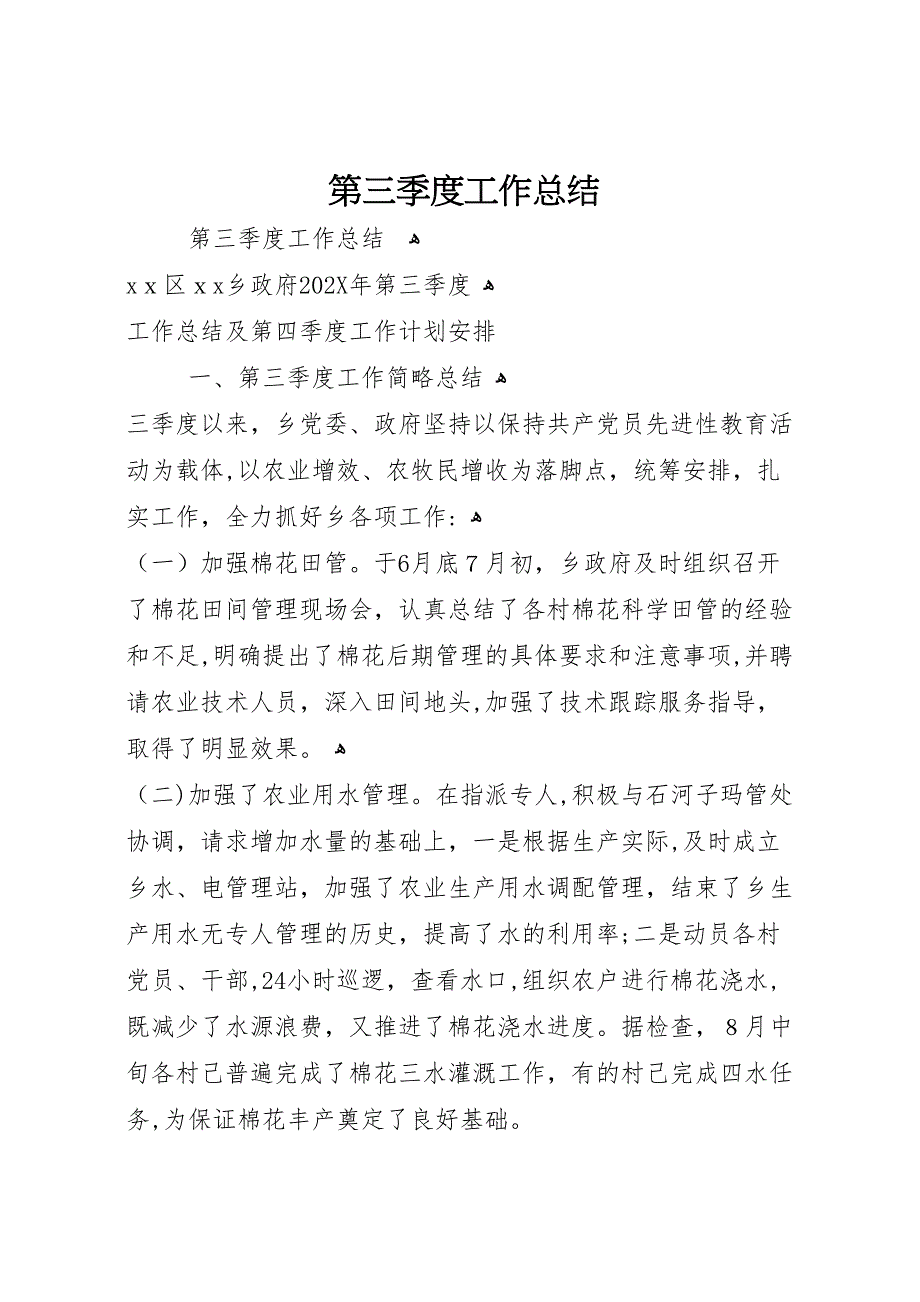 第三季度工作总结
第三季度工作总结 ﻫ
xｘ区ｘx乡政府202X年第三季度 ﻫ
工作总结及第四季度工作计划安排
一、第三季度工作简略总结 ﻫ
三季度以来，乡党委、政府坚持以保持共产党员先进性教育活
动为载体,以农业增效、农牧民增收为落脚点，统筹安排，扎
实工作，全力抓好乡各项工作: ﻫ
（一）加强棉花田管。于6月底７月初，乡政府及时组织召开
了棉花田间管理现场会，认真总结了各村棉花科学田管的经验
和不足,明确提出了棉花后期管理的具体要求和注意事项,并聘
请农业技术人员，深入田间地头,加强了技术跟踪服务指导，
取得了明显效果。 ﻫ
（二)加强了农业用水管理。在指派专人,积极与石河子玛管处
协调，请求增加水量的基础上，一是根据生产实际,及时成立
乡水、电管理站，加强了农业生产用水调配管理，结束了乡生
产用水无专人管理的历史，提高了水的利用率;二是动员各村
党员、干部,24小时巡逻，查看水口,组织农户进行棉花浇水,
既减少了水源浪费，又推进了棉花浇水进度。据检查，８月中
旬各村己普遍完成了棉花三水灌溉工作，有的村己完成四水任
务,为保证棉花丰产奠定了良好基础。